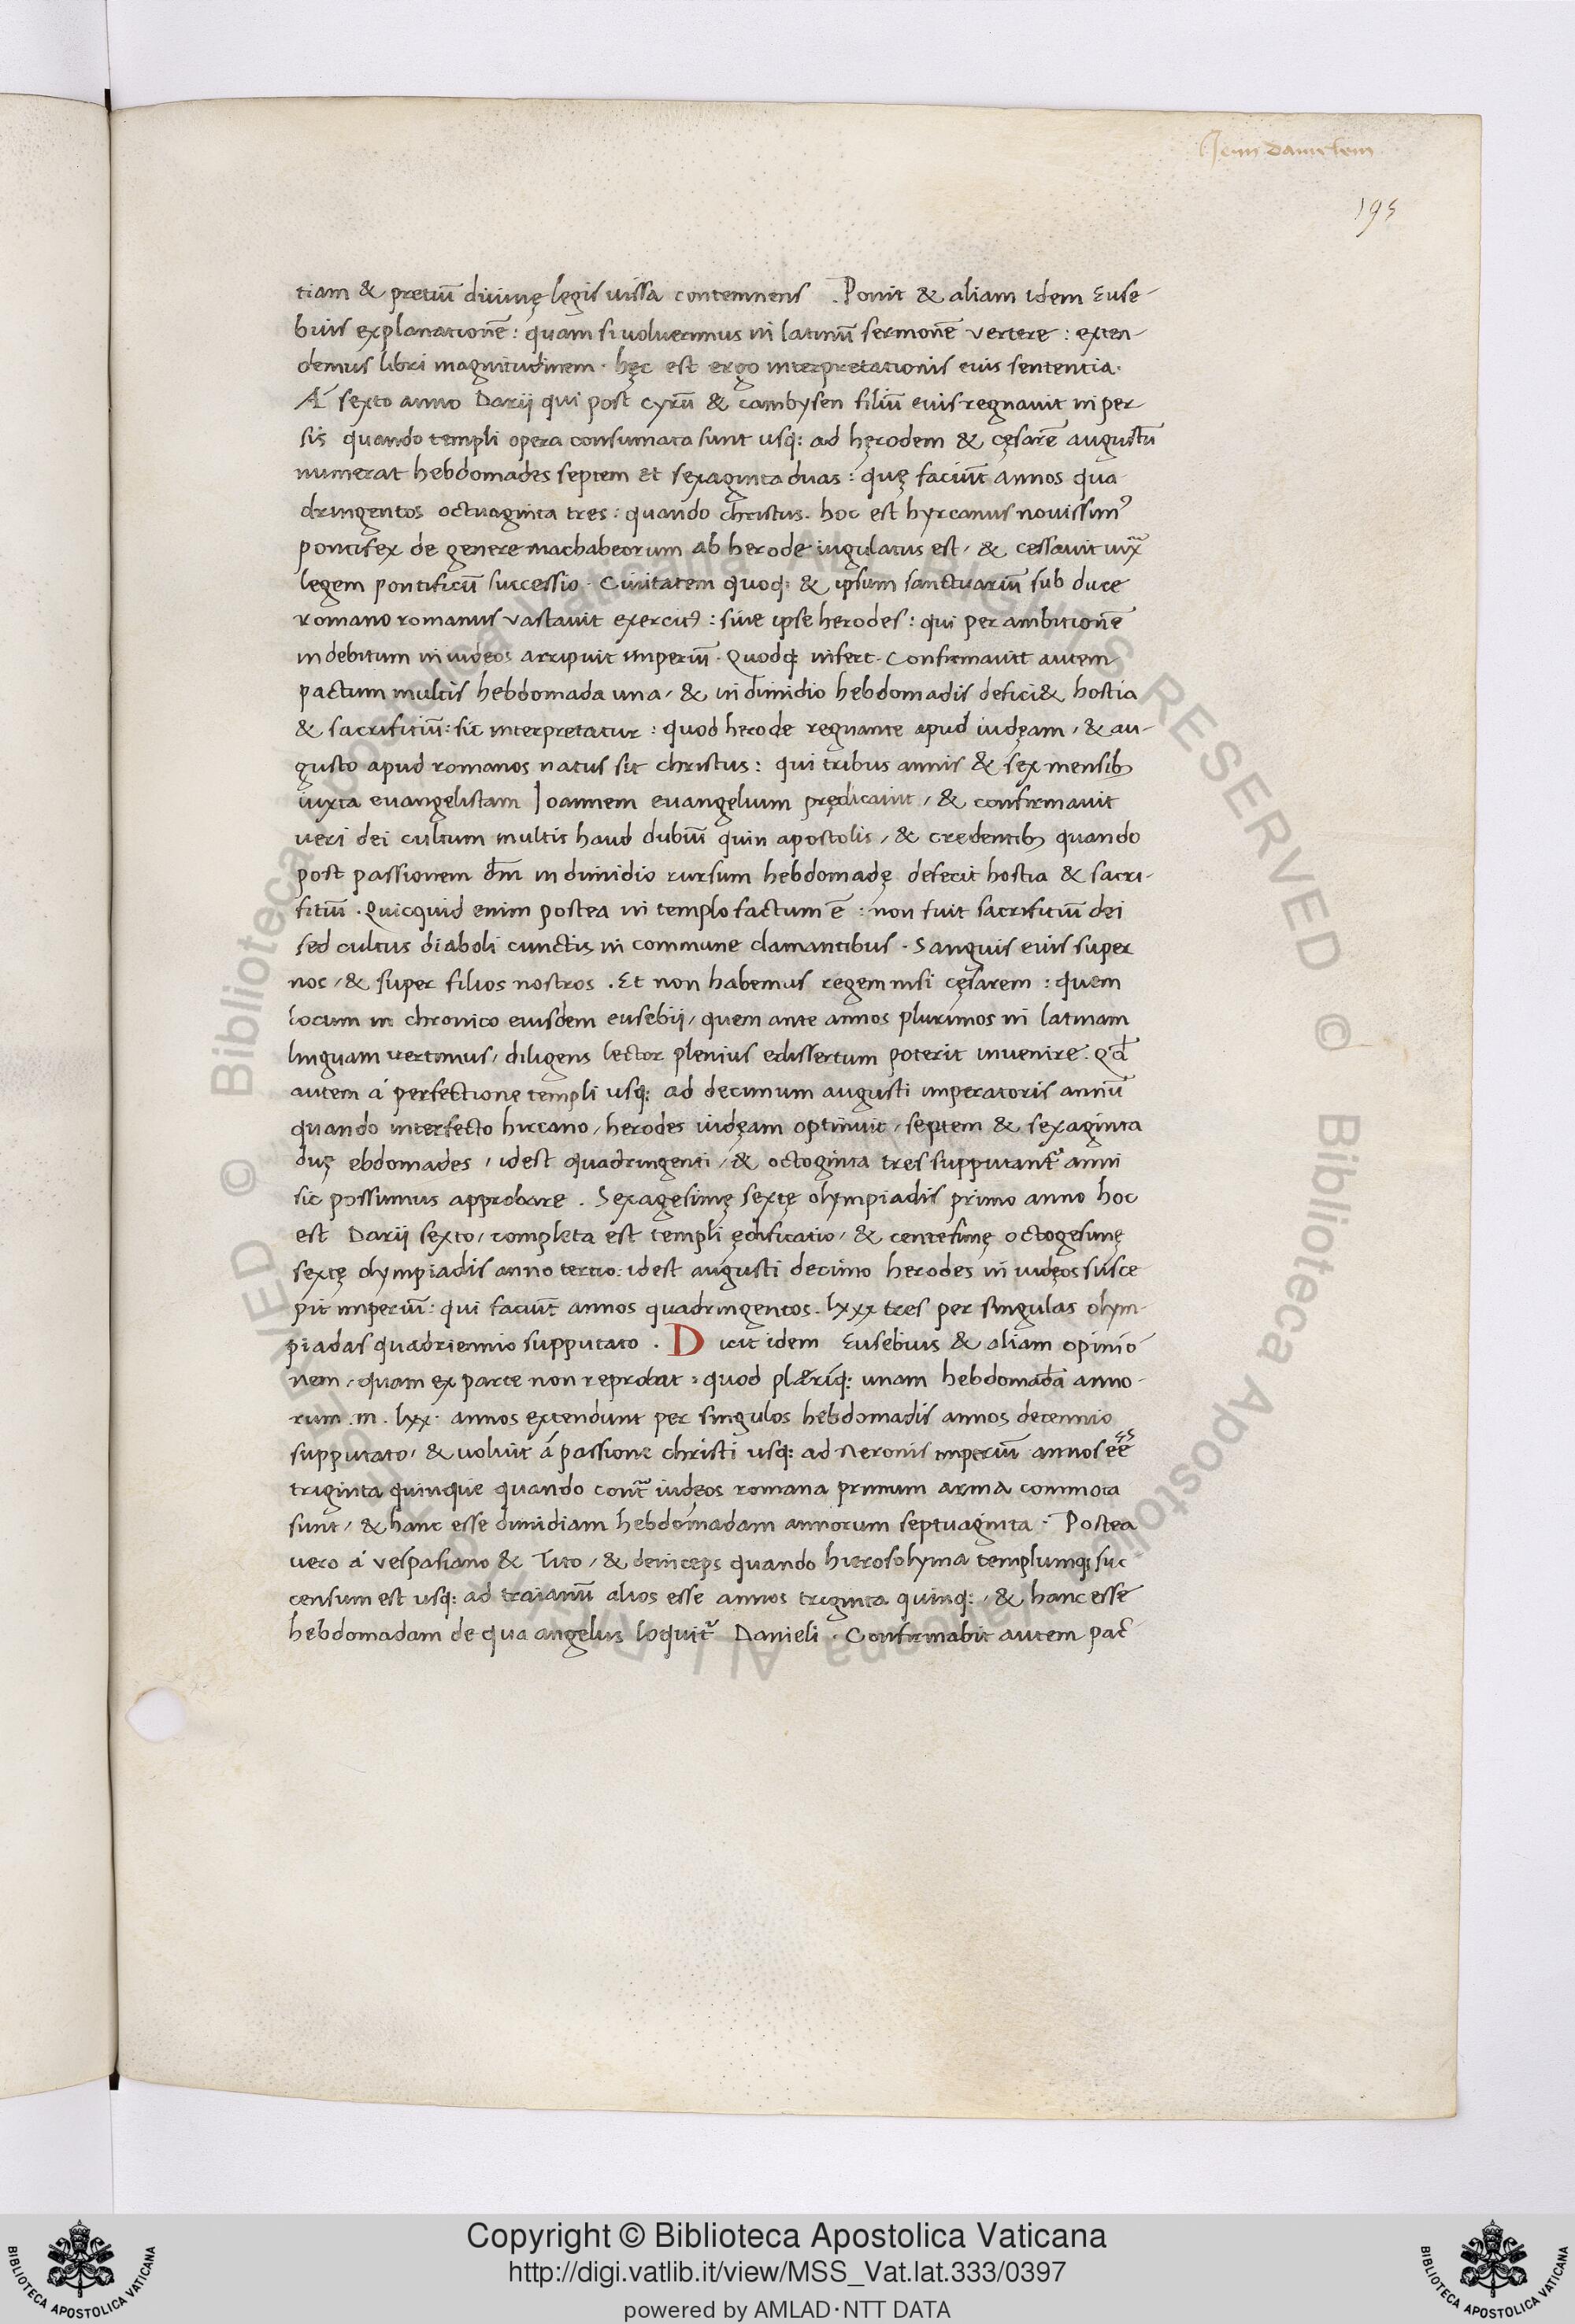 Jem danielem
195
tiam & pretiū diuinę legis iussa contemnens . Ponit & aliam idem Euse-
bius explanationē : quam si uoluerimus in latinū sermonē vertere : exten-
demus libri magnitudinem . hęc est ergo interpretationis eius sententia .
A sexto anno Darij qui post cyrū & cambysen filiū eius regnauit in per
sis quando templi opera consumata sunt usq; ad hęrodem & cęsarē augustū
numerat hebdomades septem et sexaginta duas : quę faciūt annos qua
dringentos octuaginta tres : quando christus . hoc est hyrcanus nouissimꝰ
pontifex de genere machabeorum ab herode iugulatus est / & cessauit iuxͣ
legem pontificū successio . Ciuitatem quoq; & ipsum sanctuariū sub duce
romano romanus vastauit exercitꝰ : siue ipse herodes : qui per ambitionē
indebitum in iudeos arripuit imperiū . Quodq; infert . Confirmauit autem
pactum multis hebdomada una / & in dimidio hebdomadis defici& hostia
& sacrificiū : sic interpretatur : quod herode regnante apud iudęam / & au-
gusto apud romanos natus sit christus : qui tribus annis & sex mensib;
iuxta euangelistam Joannem euangelium prędicauit / & confirmauit
ueri dei cultum multis haud dubiū quin apostolis / & credentib; quando
post passionem dn̄i in dimidio rursum hebdomadę defecit hostia & sacri-
fitiū . Quicquid enim postea in templo factum ē : non fuit sacrifitiū dei
sed cultus diaboli cunctis in commune clamantibus . Sanguis eius super
nos / & super filios nostros . Et non habemus regem nisi cęsarem : quem
locum in chronico eiusdem eusebij / quem ante annos plurimos in latinam
linguam uertimus / diligens lector plenius edissertum poterit inuenire . Qd̄
autem á perfectione templi usq; ad decimum augusti imperatoris annū
quando interfecto hircano / herodes iudęam optinuit / septem & sexaginta
duę ebdomades / idest quadringenti / & octoginta tres supputantᷣ anni
sic possumus approbare . Sexagesimę sextę olympiadis primo anno hoc
est Darij sexto / completa est templi ędificatio / & centesimę octogesimę
sextę olympiadis anno tertio : idest augusti decimo herodes in iudęos susce
pit imperiū : qui faciūt annos quadringentos . lxxx tres per singulas olym-
piadas quadriennio supputato . Dicit idem Eusebius & aliam opinio-
nem / quam ex parte non reprobat : quod plæriq; unam hebdomadā anno-
rum .in. lxx . annos extendunt per singulos hebdomadis annos decennio
supputato / & uoluit á passione christi usq; ad Neronis imperiū annos eē
triginta quinque quando contͣ iudęos romana primum arma commota
sunt / & hanc esse dimidiam hebdomadam annorum septuaginta . Postea
uero á vespasiano & Tito / & deinceps quando hierosolyma templumq; suc
censum est usq; ad traianū alios esse annos triginta quinq; / & hanc esse
hebdomadam de qua angelus loquitᷣ Danieli . Confirmabit autem pac-
Copyright © Biblioteca Apostolica Vaticana
http://digi.vatlib.it/view/MSS_Vat.lat.333/0397
powered by AMLAD·NTT DATA
BIBLIOTECA APOSTOLICA VATICANA
BIBLIOTECA APOSTOLICA VATICANA